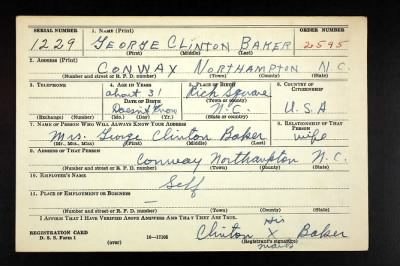 SERIAL NUMBER 1. NAME (Print) ORDER NUMBER
1229 GEORGE CLINTON BAKER 2595
(First) (Middle) (Last)
2. ADDRESS (Print)
CONWAY NORTHAMPTON N.C.
(Number and street or R. F. D. number) (Town) (County) (State)
3. TELEPHONE 4. AGE IN YEARS 5. PLACE OF BIRTH 6. COUNTRY OF CITIZENSHIP
about 31 Rich Square
DATE OF BIRTH (Town or county)
Doesn't Know N.C. U.S.A
(Exchange) (Number) (Mo.) (Day) (Yr.) (State or country)
7. NAME OF PERSON WHO WILL ALWAYS KNOW YOUR ADDRESS 8. RELATIONSHIP OF THAT PERSON
Mrs. George Clinton Baker wife
(Mr., Mrs., Miss) (First) (Middle) (Last)
9. ADDRESS OF THAT PERSON
Conway Northampton N.C.
(Number and street or R. F. D. number) (Town) (County) (State)
10. EMPLOYER'S NAME
Self
11. PLACE OF EMPLOYMENT OR BUSINESS
—
(Number and street or R. F. D. number) (Town) (County) (State)
I AFFIRM THAT I HAVE VERIFIED ABOVE ANSWERS AND THAT THEY ARE TRUE.
REGISTRATION CARD his
D. S. S. Form 1 (over) Clinton X Baker
(Registrant's signature)
mark